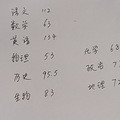 语文 112
数学 63
英语 134
物理 53
历史 95.5
生物 83
化学 68
政治 7
地理 72